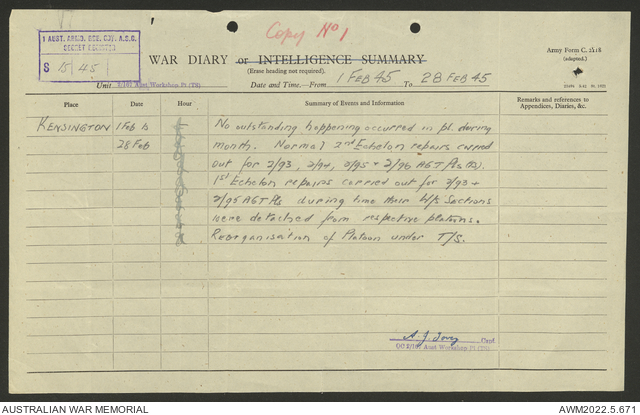 Copy No 1
1 AUST. ARMD. BDE. COY. A.S.C.
SECRET REGISTER
S 15/45
WAR DIARY or INTELLIGENCE SUMMARY
(Erase heading not required).
Army Form C. 2118
(adapted.)
Unit 2/101 Aust Workshop Pl (TS)
Date and Time.—From 1 FEB 45 To 28 FEB 45
Place
Date
Hour
Summary of Events and Information
Remarks and references to
Appendices, Diaries, &c.
KENSINGTON 1 Feb to No outstanding happening occurred in pl. during
28 Feb month. Normal 2nd Echelon repairs carried
out for 2/93, 2/94, 2/95 + 2/96 AGT Pls
1st Echelon repairs carried out for 2/93 +
2/95 AGT Pls during time their W/S Sections
were detached from respective platoons.
Reorganisation of Platoon under T/S.
Capt
OC 2/101 Aust Workshop Pl (TS)
AUSTRALIAN WAR MEMORIAL
AWM2022.5.671